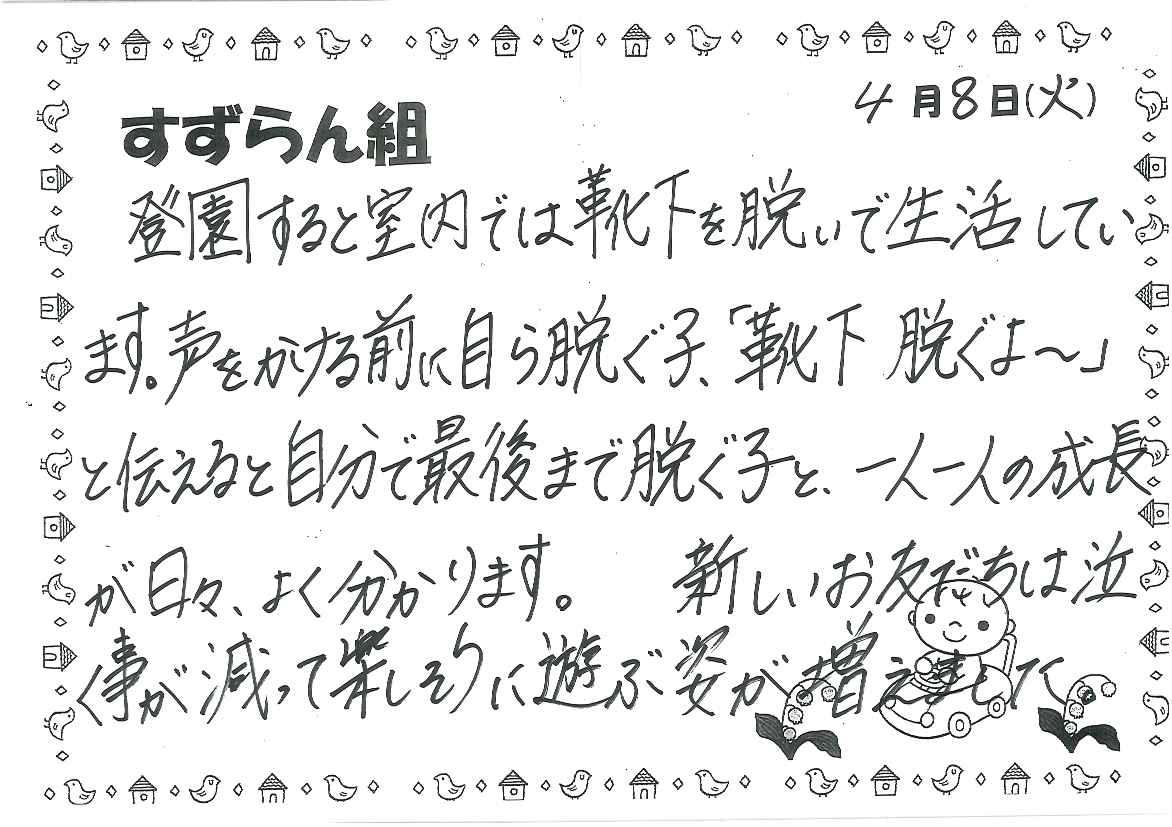 4月8日(火)
すずらん組
登園すると室内では靴下を脱いで生活してい
ます。声をかける前に自ら脱ぐ子、「靴下 脱ぐよ～」
と伝えると自分で最後まで脱ぐ子と、一人一人の成長
が日々、よく分かります。 新しいお友だちは泣
く事が減って楽しそうに遊ぶ姿が増えました